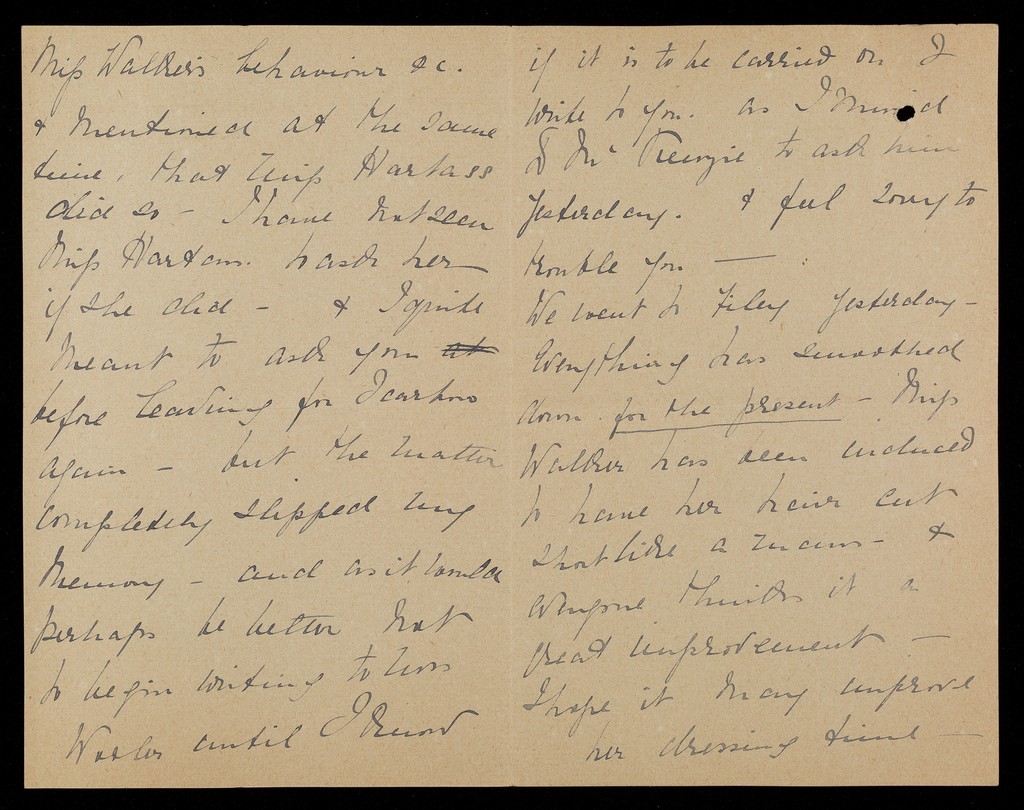 Miss Walker's behaviour &c.
& mentioned at the same
time, that Miss Hartass
did so – I have not seen
Miss Hartass. to ask her
if she did – & I quite
meant to ask you at
before leaving for Scarbro
again – but the matter
completely slipped my
memory – and as it would
perhaps be better not
to begin writing to
until I know
if it is to be carried on I
write to you. as I
to ask him
yesterday. & feel sorry to
trouble you —
We went to Filey yesterday –
Everything has smoothed
down for the present – Miss
Walker has been induced
to have her hair cut
short like a man's – &
everyone thinks it a
great improvement —
I hope it may improve
her dressing time —